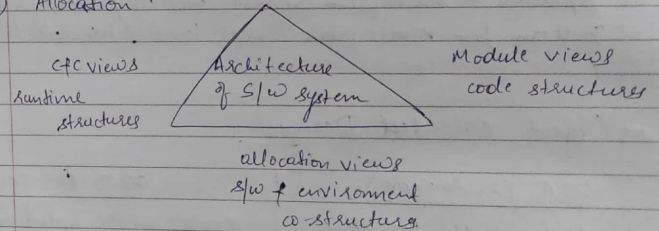 Allocation
C&C views
runtime
structures
Architecture
of S/W system
Module views
code structures
allocation views
s/w & environment
co-structure